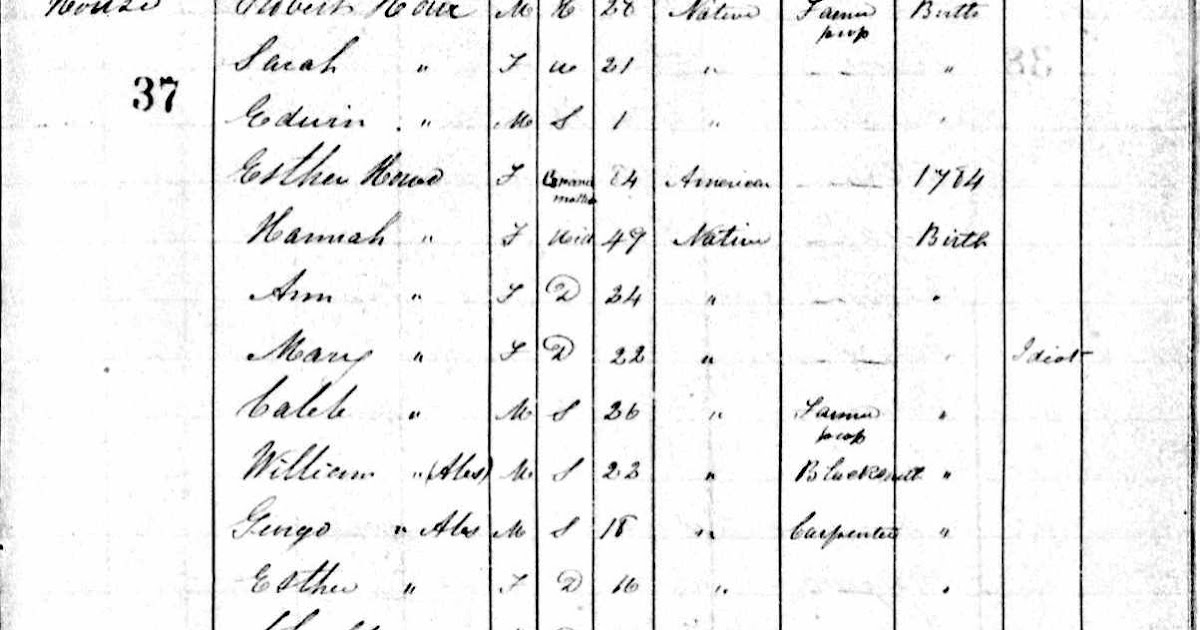 House Robert M H 28 Native Farmer Birth
prop
Sarah " F W 21 " — "
37
Edwin " M S 1 " "
Esther F 84 American — 1784
Hannah " F Wid 49 Native Birth
Ann " F D 24 " — "
Mary " F D 22 " — " Idiot
Caleb " M S 26 " Farmer "
prop
William " (Abs) M S 22 " Blacksmith "
" Abs M S 18 " Carpenter "
Esther " F D 16 " "